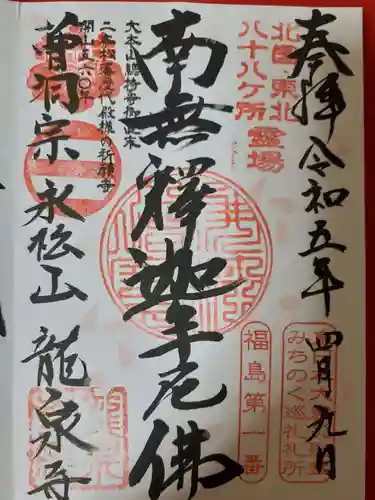 奉拝 令和五年 四月九日
北国 東北
八十八ヶ所 霊場
福島第一番
みちのく巡礼札所
南無釋迦牟尼佛
大本山總持寺御直末
二本松藩歴代殿様の祈願寺
開山五六〇年
曹洞宗 永松山 龍泉寺